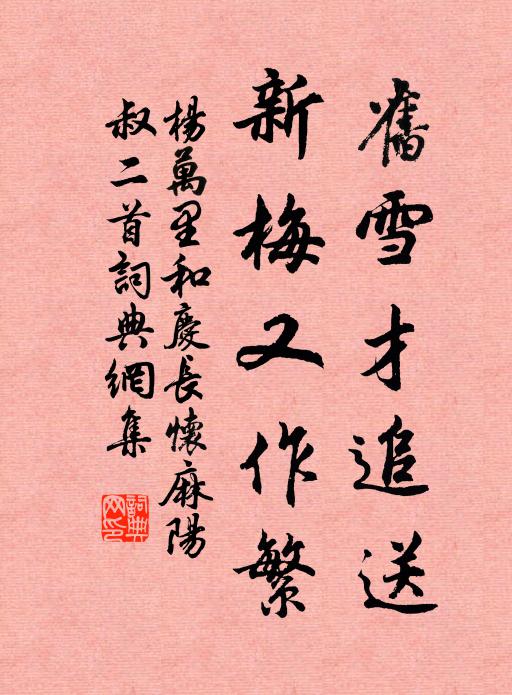 舊雪才追送
新梅又作繁
楊萬里和慶長懷麻陽
叔二首詞典網集
詞典
网印